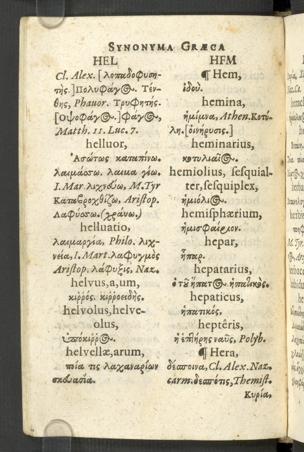 SYNONYMA GRÆCA
HEL
Cl. Alex. [λοπαδοφυση-
τής.] πολυφάγος. Τέν-
θης, Phavor. Τρυφητής.
[Οψοφάγος.] φάγος,
Matth. 11. Luc. 7.
helluor,
Ασώτως καταπίνω.
λαιμάσσω, λαιμα
I. Mar. λιχνεύω, M. Tyr
Καταβροχθίζω, Aristop.
Λαφύσσω. (χράνω)
helluatio,
λαιμαργία, Philo. λιχ-
νεία, I. Mart. λαφυγμὸς
Aristop. λάφυξις, Naz.
helvus, a, um,
κιρρός. κιρροειδής.
helvolus, helve-
olus,
ὑπόκιρρος.
helvellæ, arum,
ποία τις λαχαναρίων
σκευασία.
HEM
¶ Hem,
ἰδού.
hemina,
ἡμίμνα, Athen. Κοτύ-
λη.
heminarius,
κοτυλιαῖος.
hemiolius, sesquial-
ter, sesquiplex,
ἡμιόλιος.
hemisphærium,
ἡμισφαίριον.
hepar,
ἧπαρ.
hepatarius,
ὁ τοῦ ἥπατος. ἡπατικός.
hepaticus,
ἡπατικός.
hepteris,
ἡ ἑπτήρης ναῦς, Polyb.
¶ Hera,
δέσποινα, Cl. Alex. Naz.
carm. δεσπότις, Themist.
Κυρία,